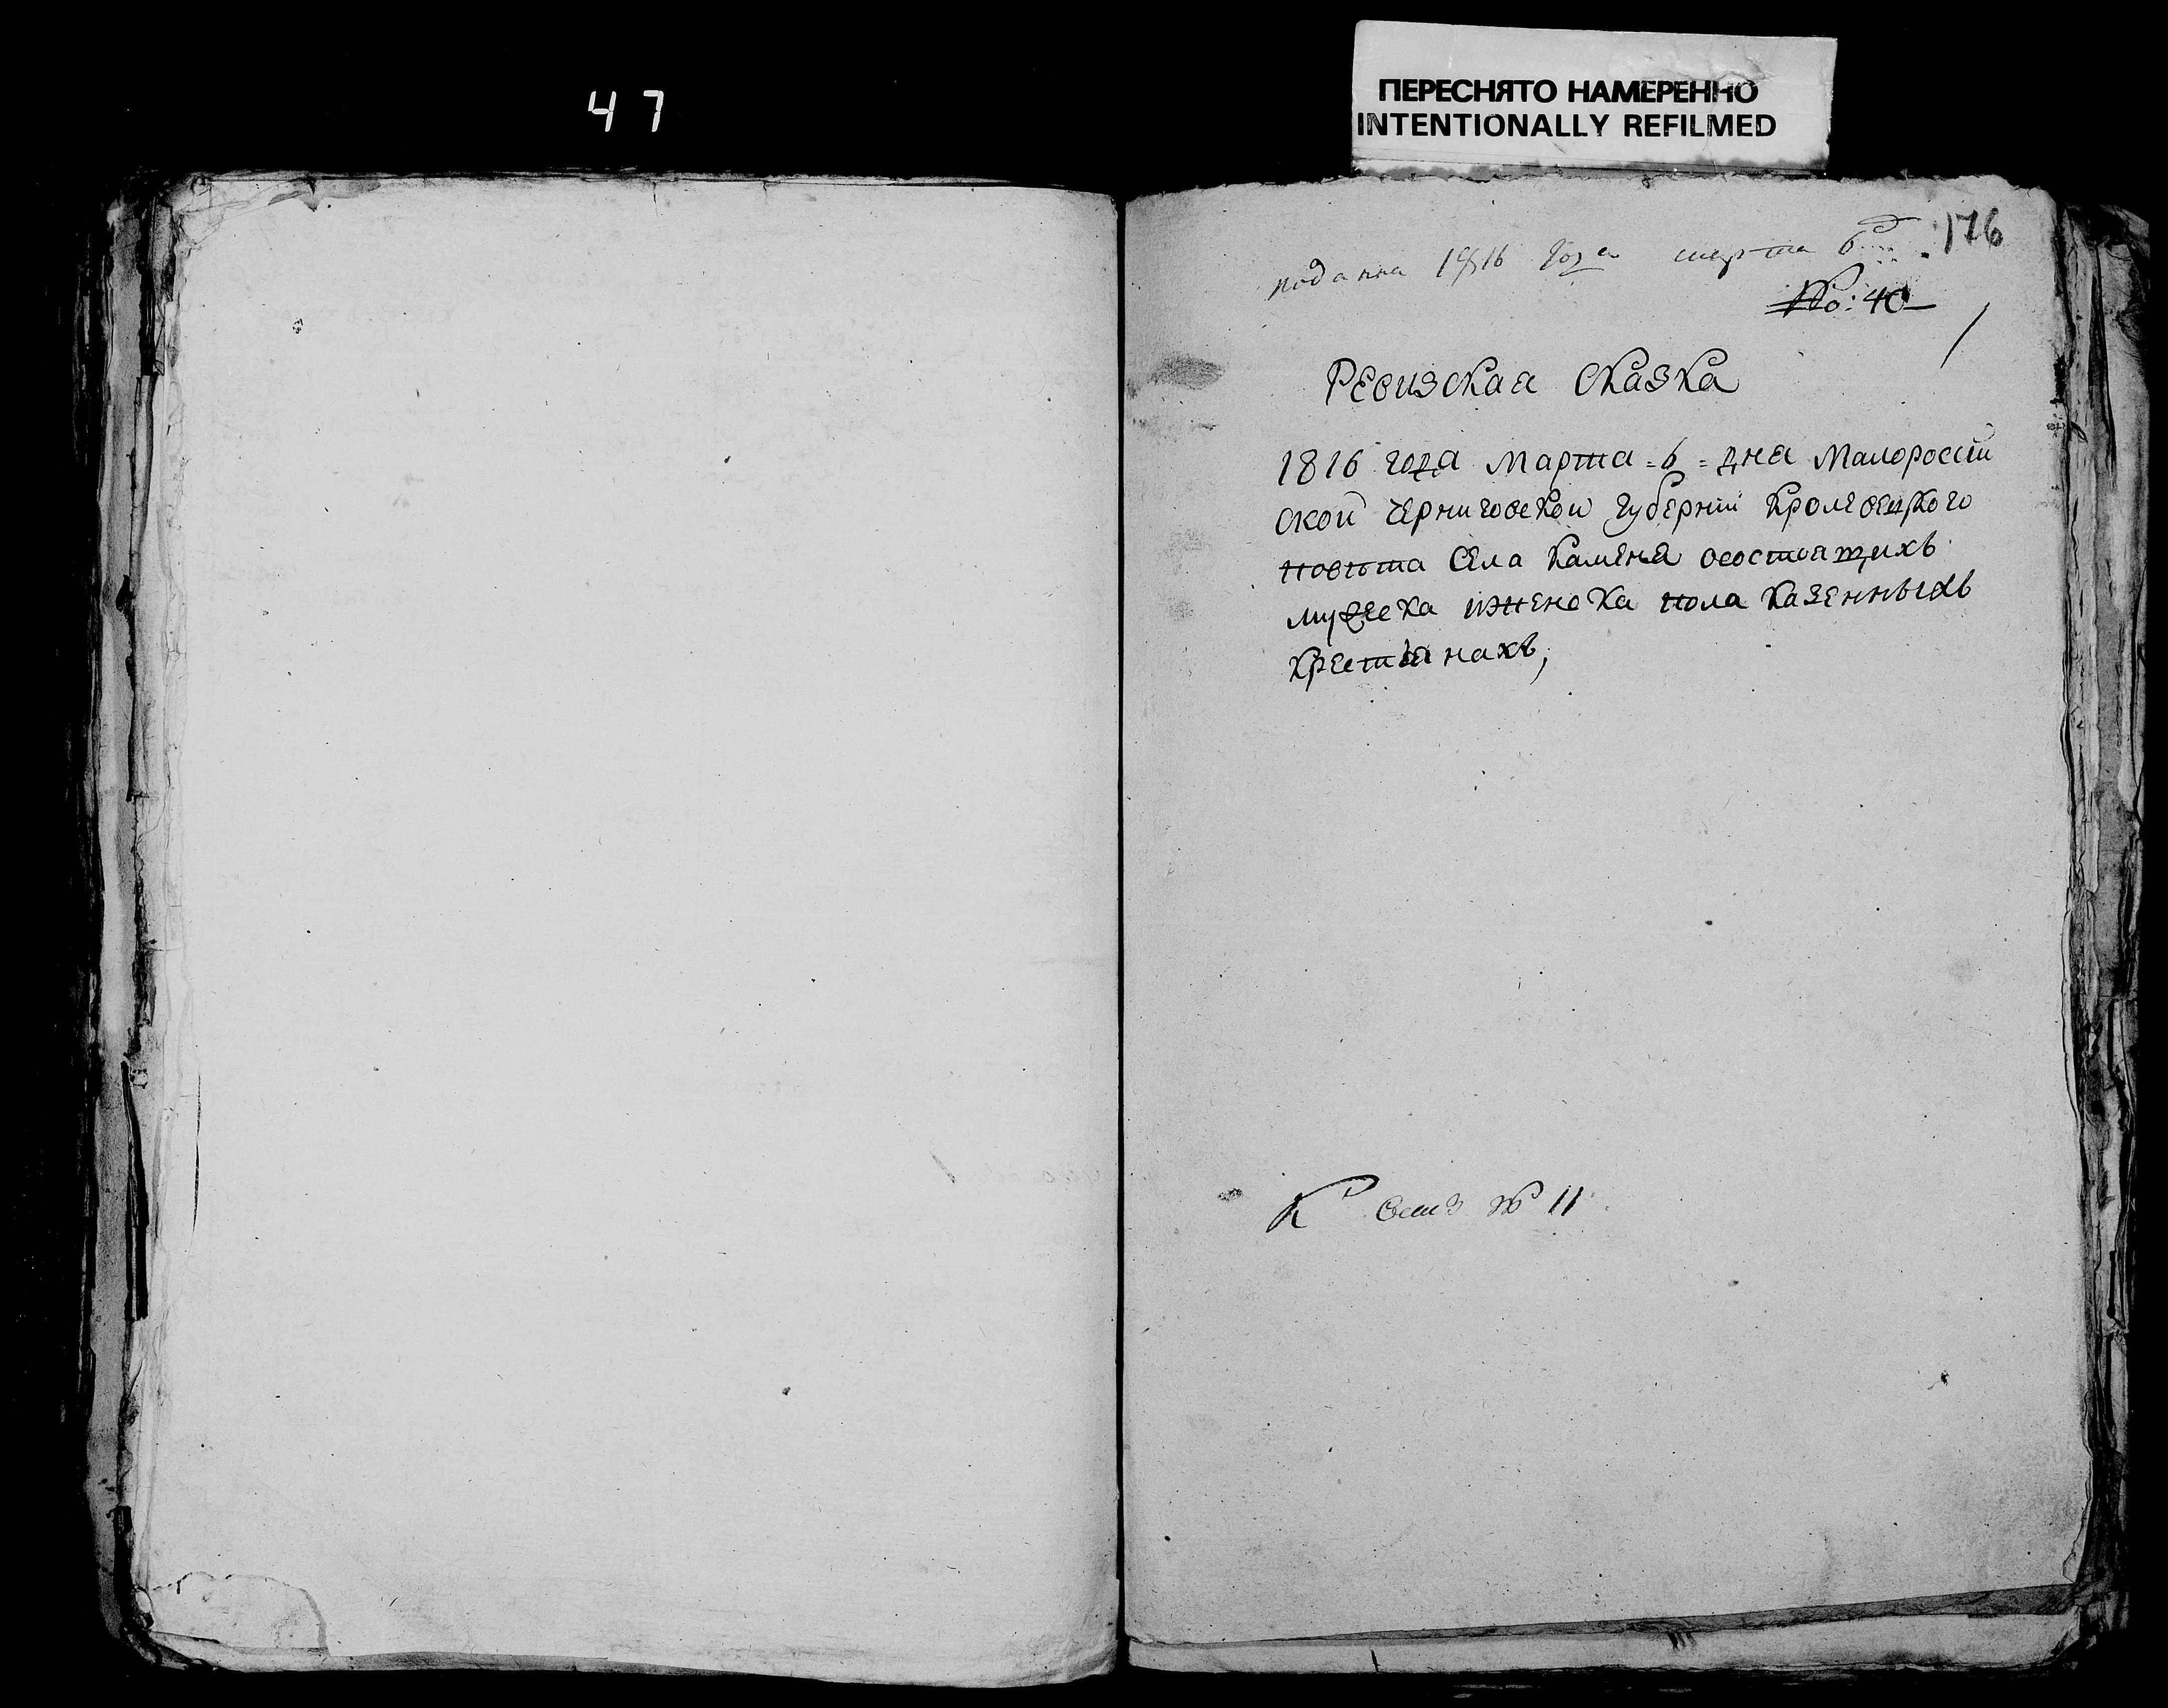 47
ПЕРЕСНЯТО НАМЕРЕННО
INTENTIONALLY REFILMED
176
подана 1816 года марта 6
№: 40
Ревизская Сказка
1816 года марта = 6 = дня Малоросiй
ской Черниговской губернiи Кролевецкого
повѣта Села Каменя осостоящихъ
мужеска иженска пола казенныхъ
крестьянахъ,
К № 11